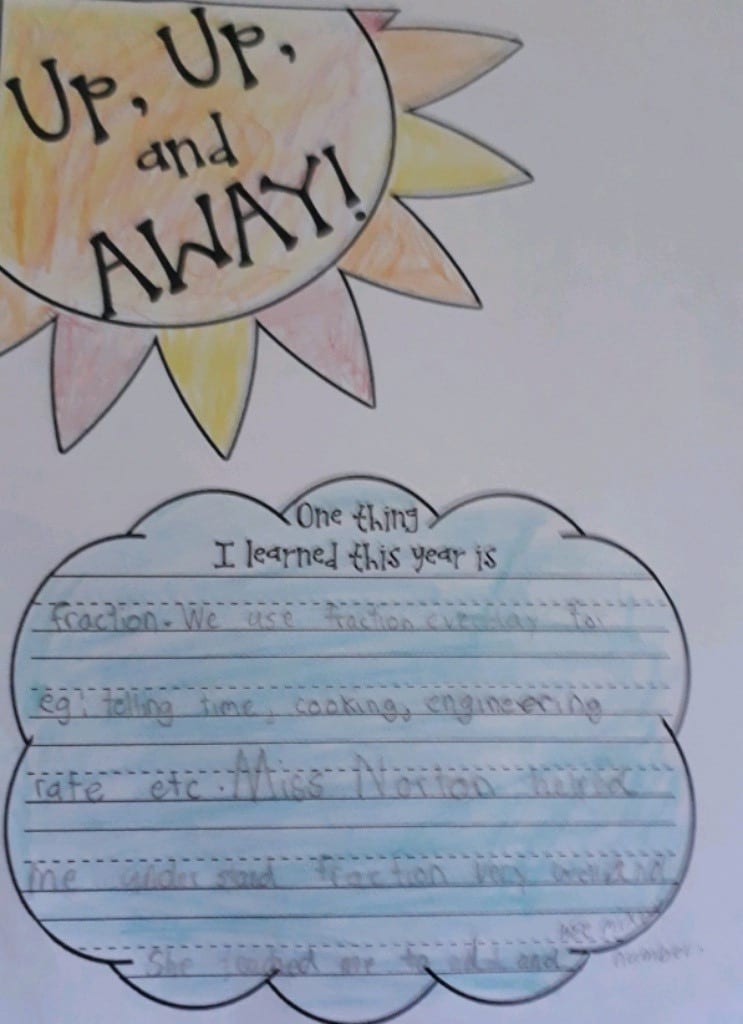 Up, Up,
and
AWAY!
One thing
I learned this year is
fraction. We use fraction everyday for
eg: telling time, cooking, engineering
rate etc. Miss Norton helped
me understand fraction very well and
She teached me to add and
number.